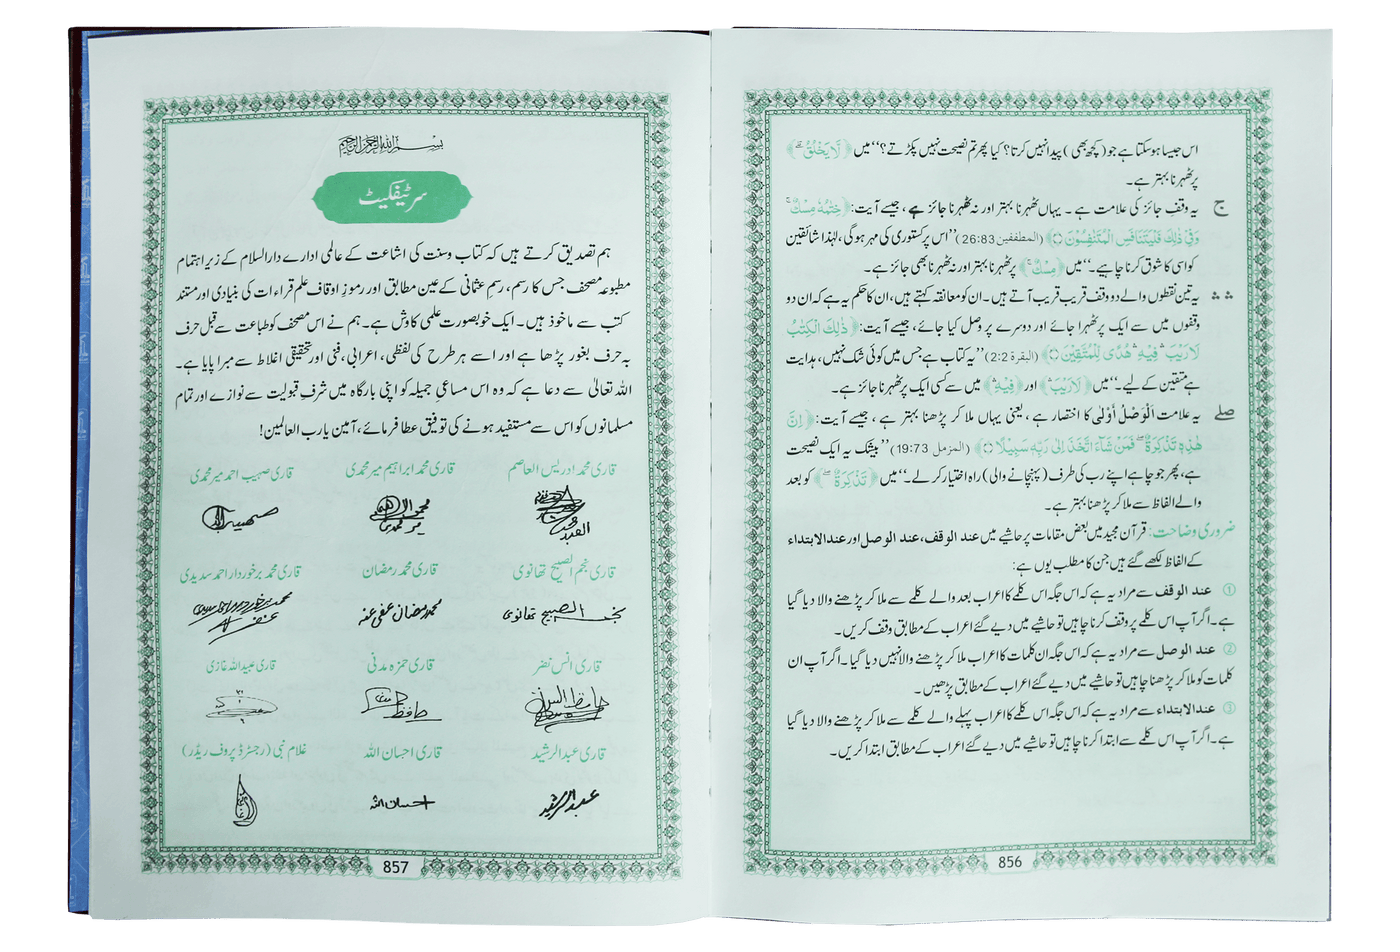 اس جیسا ہوسکتا ہے جو (کچھ بھی) پیدا نہیں کرتا؟ کیا پھر تم نصیحت نہیں پکڑتے؟‘‘ میں ﴿لَا يَخْلُقُ ؕ﴾
پر ٹھہرنا بہتر ہے۔
ج یہ وقفِ جائز کی علامت ہے۔ یہاں ٹھہرنا بہتر اور نہ ٹھہرنا جائز ہے، جیسے آیت: ﴿خِتٰمُهٗ مِسْكٌ ؕ
وَفِيْ ذٰلِكَ فَلْيَتَنَافَسِ الْمُتَنٰفِسُوْنَ ۝﴾ (المطففین 26:83) ’’اس پر کستوری کی مہر ہوگی، لہٰذا شائقین
کو اسی کا شوق کرنا چاہیے۔‘‘ میں ﴿مِسْكٌ ؕ﴾ پر ٹھہرنا بہتر اور نہ ٹھہرنا بھی جائز ہے۔
ۛ ۛ یہ تین نقطوں والے دو وقف قریب قریب آتے ہیں۔ ان کو معانقہ کہتے ہیں، ان کا حکم یہ ہے کہ ان دو
وقفوں میں سے ایک پر ٹھہرا جائے اور دوسرے پر وصل کیا جائے، جیسے آیت: ﴿ذٰلِكَ الْكِتٰبُ
لَا رَيْبَ ۛ فِيْهِ ۛ هُدًى لِّلْمُتَّقِيْنَ ۝﴾ (البقرۃ 2:2) ’’یہ کتاب ہے جس میں کوئی شک نہیں، ہدایت
ہے متقین کے لیے۔‘‘ میں ﴿لَا رَيْبَ ۛ﴾ اور ﴿فِيْهِ ۛ﴾ میں سے کسی ایک پر ٹھہرنا جائز ہے۔
صلے یہ علامت اَلْوَصْلُ اَوْلٰی کا اختصار ہے، یعنی یہاں ملا کر پڑھنا بہتر ہے، جیسے آیت: ﴿اِنَّ
هٰذِهٖ تَذْكِرَةٌ ۖ فَمَنْ شَآءَ اتَّخَذَ اِلٰى رَبِّهٖ سَبِيْلًا ۝﴾ (المزمل 19:73) ’’بیشک یہ ایک نصیحت
ہے، پھر جو چاہے اپنے رب کی طرف (پہنچانے والی) راہ اختیار کر لے۔‘‘ میں ﴿تَذْكِرَةٌ ۖ﴾ کو بعد
والے الفاظ سے ملا کر پڑھنا بہتر ہے۔
ضروری وضاحت: قرآن مجید میں بعض مقامات پر حاشیے میں عند الوقف، عند الوصل اور عندالابتداء
کے الفاظ لکھے گئے ہیں جن کا مطلب یوں ہے:
① عند الوقف سے مراد یہ ہے کہ اس جگہ اس کلمے کا اعراب بعد والے کلمے سے ملا کر پڑھنے والا دیا گیا
ہے۔ اگر آپ اس کلمے پر وقف کرنا چاہیں تو حاشیے میں دیے گئے اعراب کے مطابق وقف کریں۔
② عند الوصل سے مراد یہ ہے کہ اس جگہ ان کلمات کا اعراب ملا کر پڑھنے والا نہیں دیا گیا۔ اگر آپ ان
کلمات کو ملا کر پڑھنا چاہیں تو حاشیے میں دیے گئے اعراب کے مطابق پڑھیں۔
③ عندالابتداء سے مراد یہ ہے کہ اس جگہ اس کلمے کا اعراب پہلے والے کلمے سے ملا کر پڑھنے والا دیا گیا
ہے۔ اگر آپ اس کلمے سے ابتدا کرنا چاہیں تو حاشیے میں دیے گئے اعراب کے مطابق ابتدا کریں۔
856
بسم الله الرحمن الرحيم
سرٹیفکیٹ
ہم تصدیق کرتے ہیں کہ کتاب و سنت کی اشاعت کے عالمی ادارے دارالسلام کے زیرِ اہتمام
مطبوعہ مصحف جس کا رسم، رسمِ عثمانی کے عین مطابق اور رموزِ اوقاف علمِ قراءات کی بنیادی اور مستند
کتب سے ماخوذ ہیں۔ ایک خوبصورت علمی کاوش ہے۔ ہم نے اس مصحف کو طباعت سے قبل حرف
بہ حرف بغور پڑھا ہے اور اسے ہر طرح کی لفظی، اعرابی، فنی اور تحقیقی اغلاط سے مبرا پایا ہے۔
اللہ تعالیٰ سے دعا ہے کہ وہ اس مساعیِ جمیلہ کو اپنی بارگاہ میں شرفِ قبولیت سے نوازے اور تمام
مسلمانوں کو اس سے مستفید ہونے کی توفیق عطا فرمائے، آمین یا رب العالمین!
قاری محمد ادریس العاصم قاری محمد ابراہیم میر محمدی قاری صہیب احمد میر محمدی
صہیب
قاری نجم الصبیح تھانوی قاری محمد رمضان قاری محمد برخوردار احمد سدیدی
نجم الصبیح تھانوی محمد رمضان عفی عنہ
قاری انس نضر قاری حمزہ مدنی قاری عبید اللہ غازی
قاری عبدالرشید قاری احسان اللہ غلام نبی (رجسٹرڈ پروف ریڈر)
عبدالرشید احسان اللہ
857